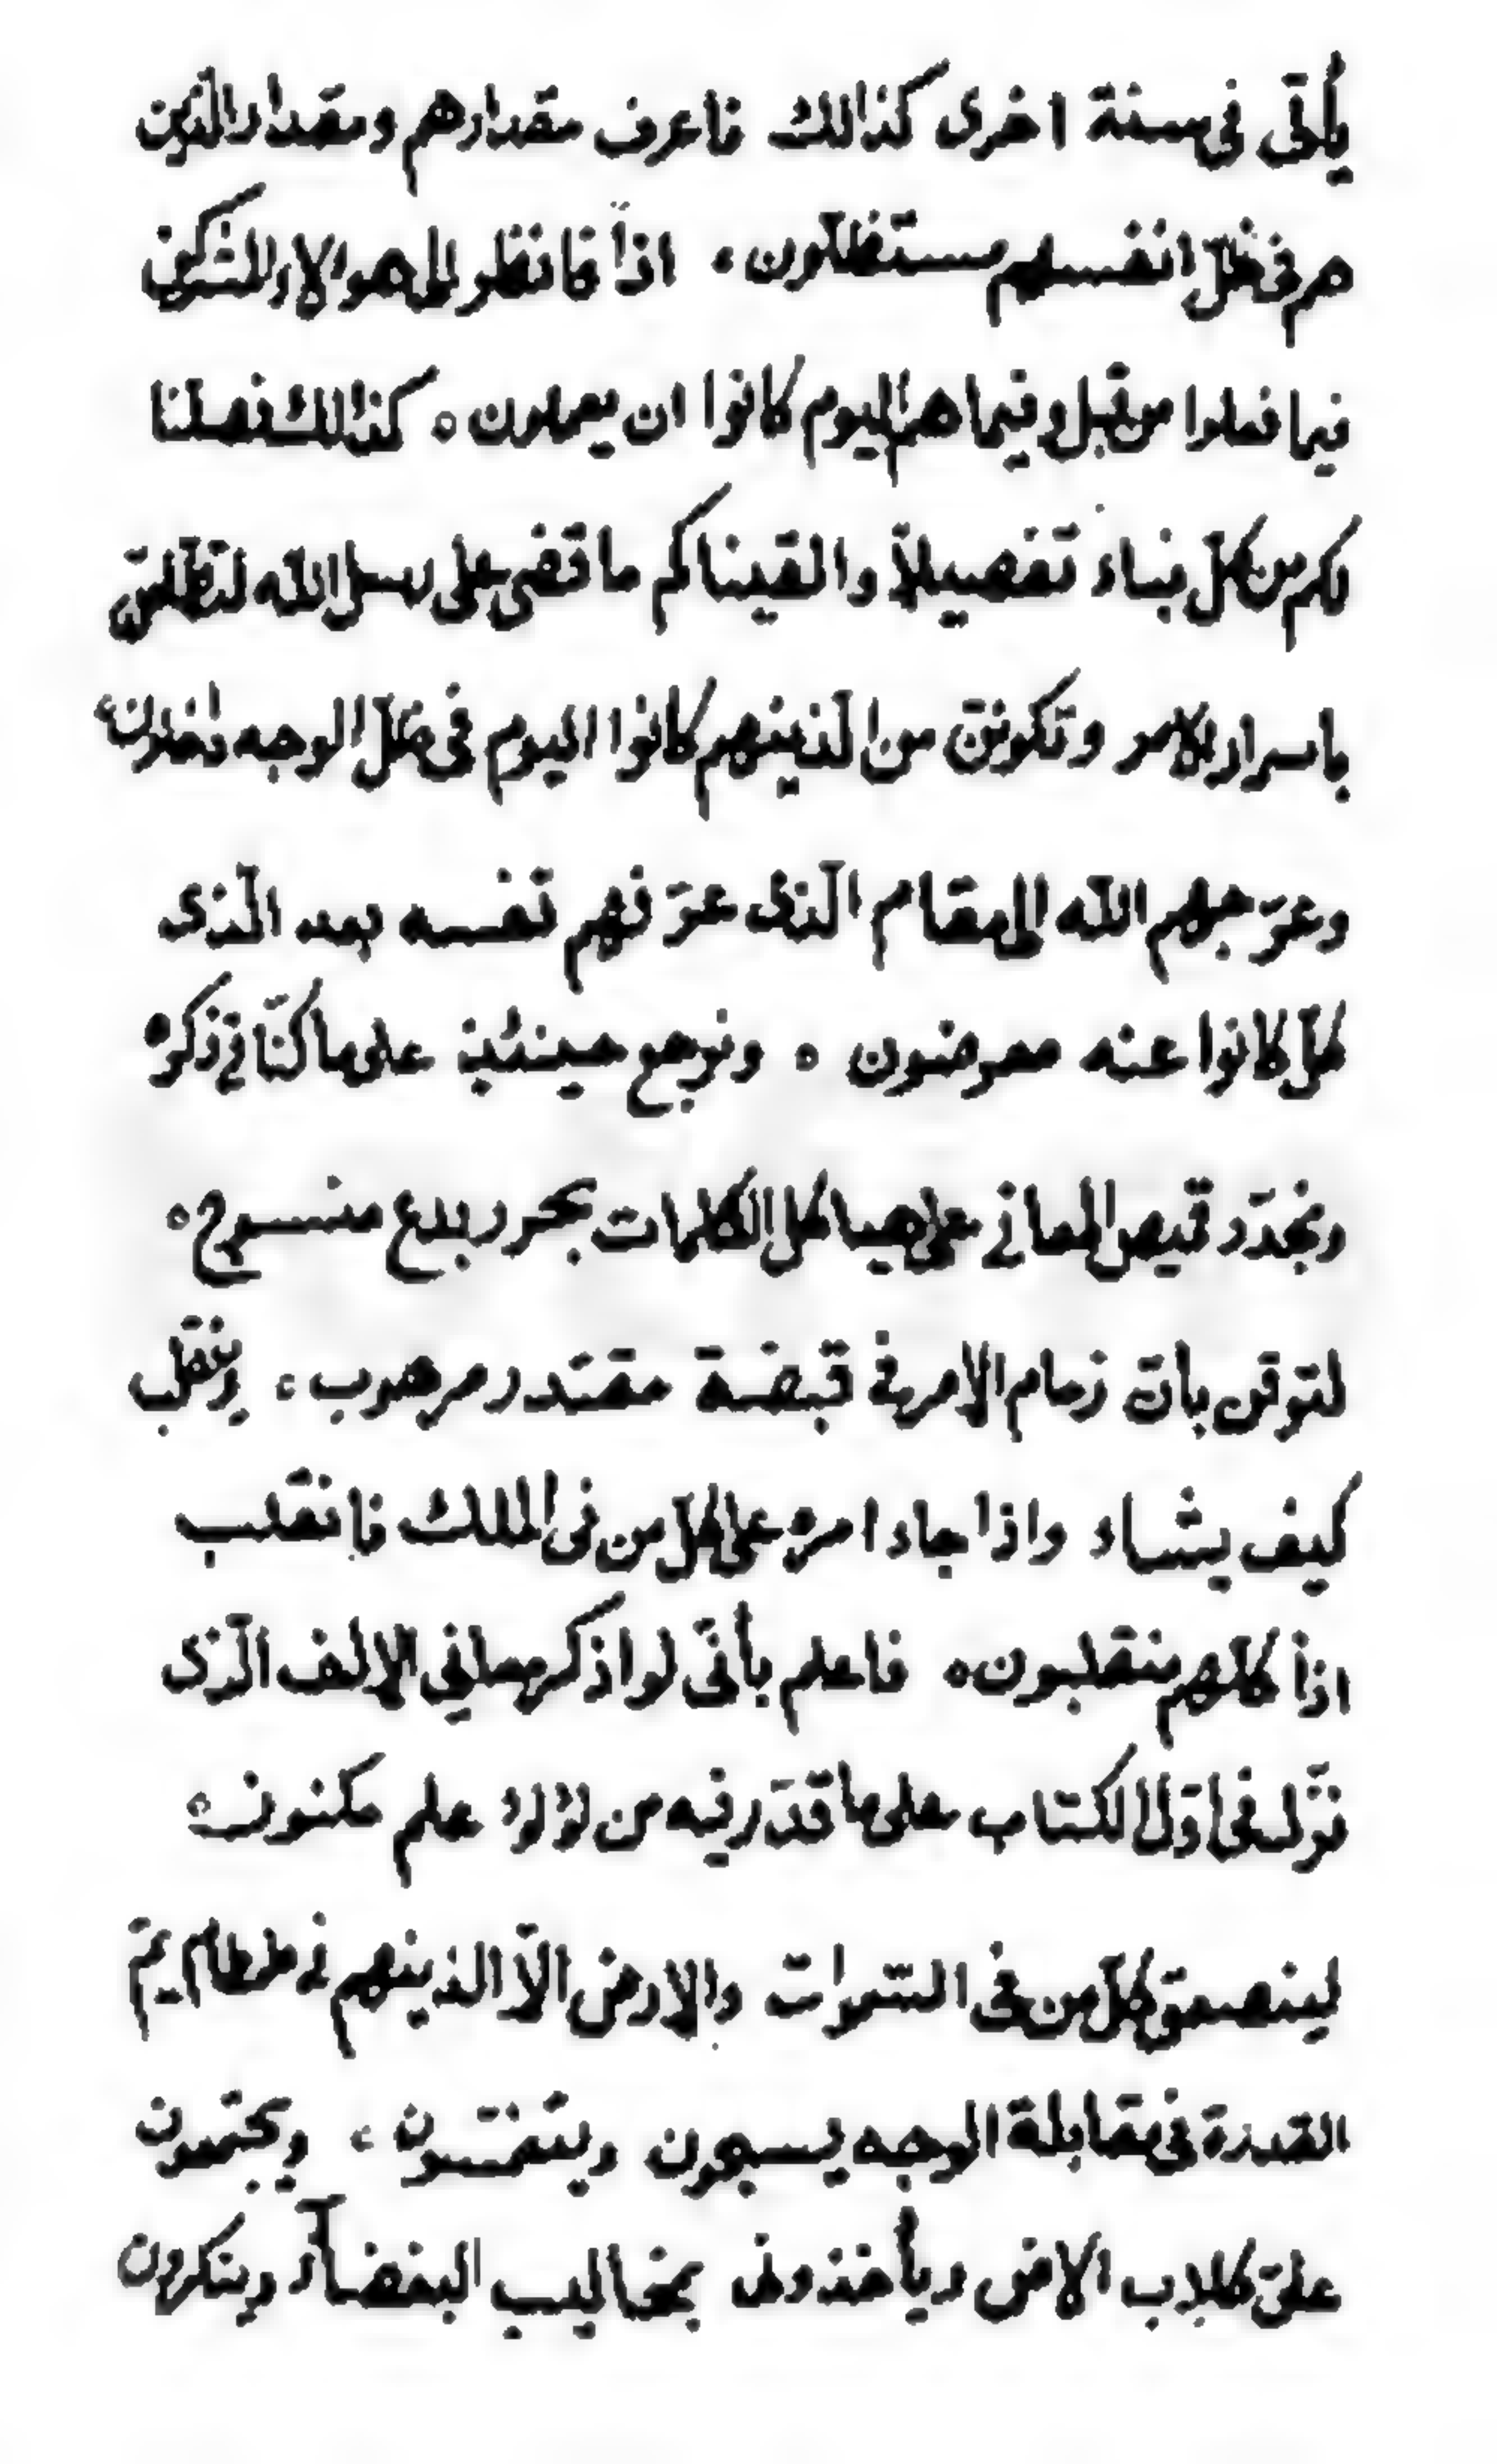 يأتى فى سنة اخرى كذالك فاعرف مقدارهم ومقدار الّذين
هم فى ظلّ انفسهم مستظلّون، اذاً فانظر الى هولاء المشركين
فيما فعلوا من قبل وفيما هم اليوم كانوا ان يعملون ه كذالك فصلنا
لكم من كلّ نباء تفصيلاً والقيناكم ما قضى على رسل الله لتطلعنّ
باسرار الامر وتكوننّ من الّذينهم كانوا اليوم فى ظلّ الوجه داخلون،
وعرّجهم الله الى مقام الّذى عرّفهم نفسه بعد الّذى
كلّ كانوا عنه معرضون ه ونرجع حينئيذ على ما كنّا فى ذكره
ونجدّد قميص المعانى على هياكل الكلمات بحرر بدع منسوج ه
لتوقن بأنّ زمام الامر فى قبضة مقتدر مرهوب، وينقلب
كيف يشاء واذا جاء امره على كلّ من فى الملك فانقلب
اذاً كلّهم منقلبون ه فاعلم بأنّى لو اذكر معانى الالف الّذى
نزّل فى اوّل الكتاب على ما قدّر فيه من لؤلؤ علم مكنون ه
لينصعق كلّ من فى السّموات والارض الّا الذينهم فى طمطام يمّ
القدرة فى مقابلة الوجه يسبحون ويتغمّسون، ويجتمعون
علىّ كلاب الارض ويأخذونى بمخاليب البغضآء وينكرون